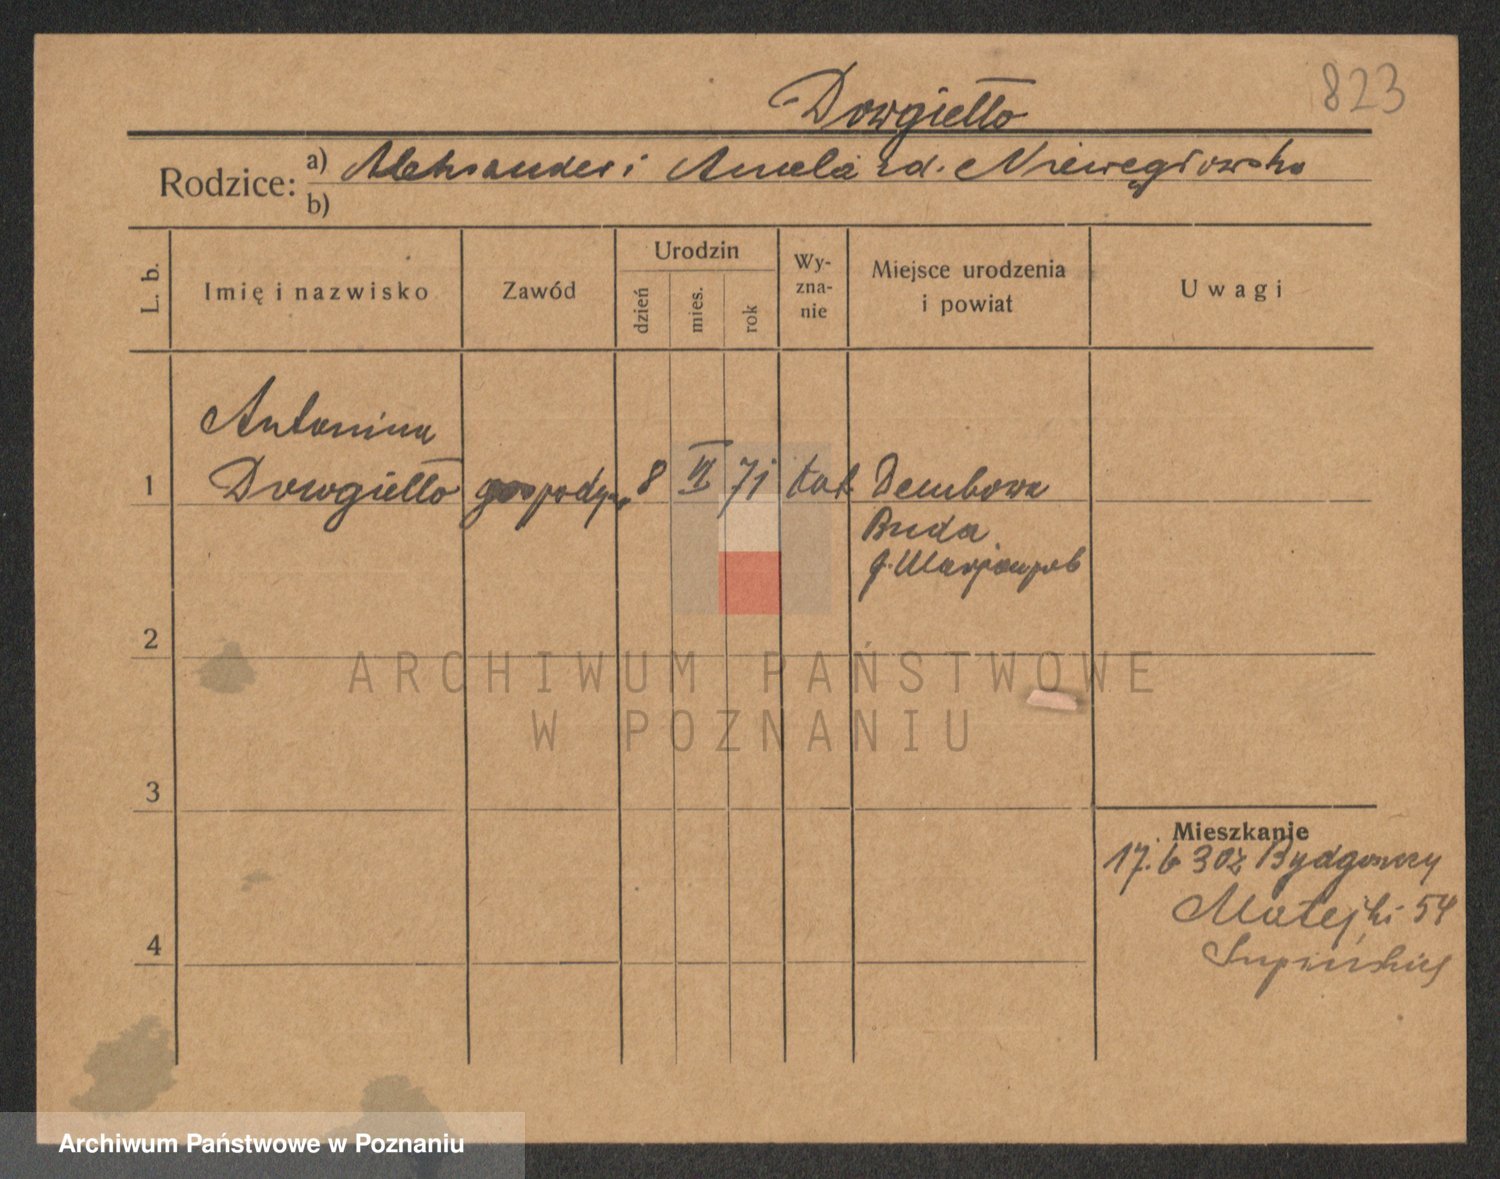 823
Dowgiełło
Rodzice: a) Aleksander i Aniela zd. Niewęgłowska
b)
L. b.
Imię i nazwisko
Zawód
Urodzin
dzień
mies.
rok
Wy-
zna-
nie
Miejsce urodzenia
i powiat
Uwagi
Antonina
1 Dowgiełło gospodyni 8 VI 71 kat Dembowa
Buda
g. Marjampol
2
3
4
Mieszkanie
17. 6 30 z Bydgoszczy
Matejki 54
ARCHIWUM PAŃSTWOWE
W POZNANIU
Archiwum Państwowe w Poznaniu